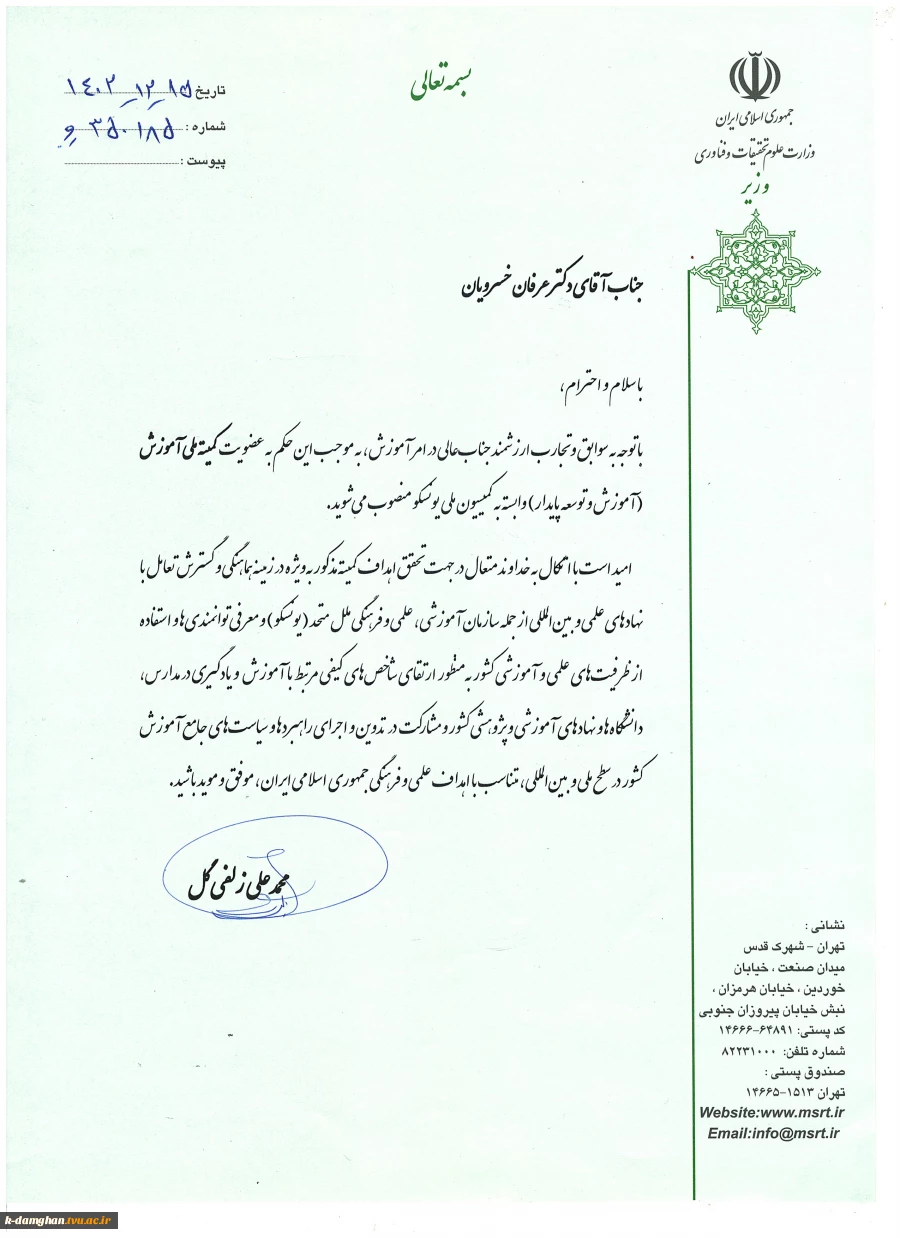 بسمه تعالی
جمهوری اسلامی ایران
وزارت علوم تحقیقات و فناوری
وزیر
تاریخ ۱۴۰۲_۱۲_۱۵
شماره : ۳۵۰۱۸۵ و
پیوست :
جناب آقای دکتر عرفان خسرویان
با سلام و احترام،
با توجه به سوابق و تجارب ارزشمند جناب عالی در امر آموزش، به موجب این حکم به عضویت کمیته ملی آموزش
(آموزش و توسعه پایدار) وابسته به کمیسیون ملی یونسکو منصوب می شوید.
امید است با اتکال به خداوند متعال در جهت تحقق اهداف کمیته مذکور به ویژه در زمینه هماهنگی و گسترش تعامل با
نهادهای علمی و بین المللی از جمله سازمان آموزشی، علمی و فرهنگی ملل متحد (یونسکو) و معرفی توانمندی ها و استفاده
از ظرفیت های علمی و آموزشی کشور به منظور ارتقای شاخص های کیفی مرتبط با آموزش و یادگیری در مدارس،
دانشگاه ها و نهادهای آموزشی و پژوهشی کشور و مشارکت در تدوین و اجرای راهبردها و سیاست های جامع آموزش
کشور در سطح ملی و بین المللی، متناسب با اهداف علمی و فرهنگی جمهوری اسلامی ایران، موفق و موید باشید.
محمد علی زلفی گل
نشانی :
تهران - شهرک قدس
میدان صنعت ، خیابان
خوردین ، خیابان هرمزان ،
نبش خیابان پیروزان جنوبی
کد پستی: ۶۴۸۹۱-۱۴۶۶۶
شماره تلفن: ۸۲۲۳۱۰۰۰
صندوق پستی :
تهران ۱۵۱۳-۱۴۶۶۵
Website:www.msrt.ir
Email:info@msrt.ir
k-damghan.tvu.ac.ir